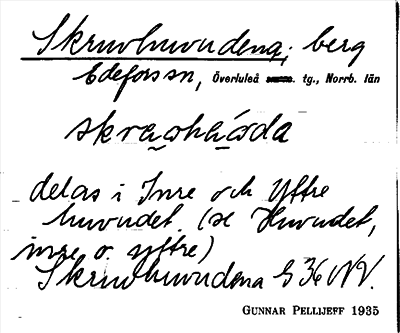 Skruvhuvudena, berg
Edefors sn, Överluleå tg., Norrb. län
skra̲oha̲oda
delas i Inre och Yttre
huvudet. (se Huvudet,
inre o. yttre)
Skruvhuvudena G 36 NV.
GUNNAR PELLIJEFF 1935